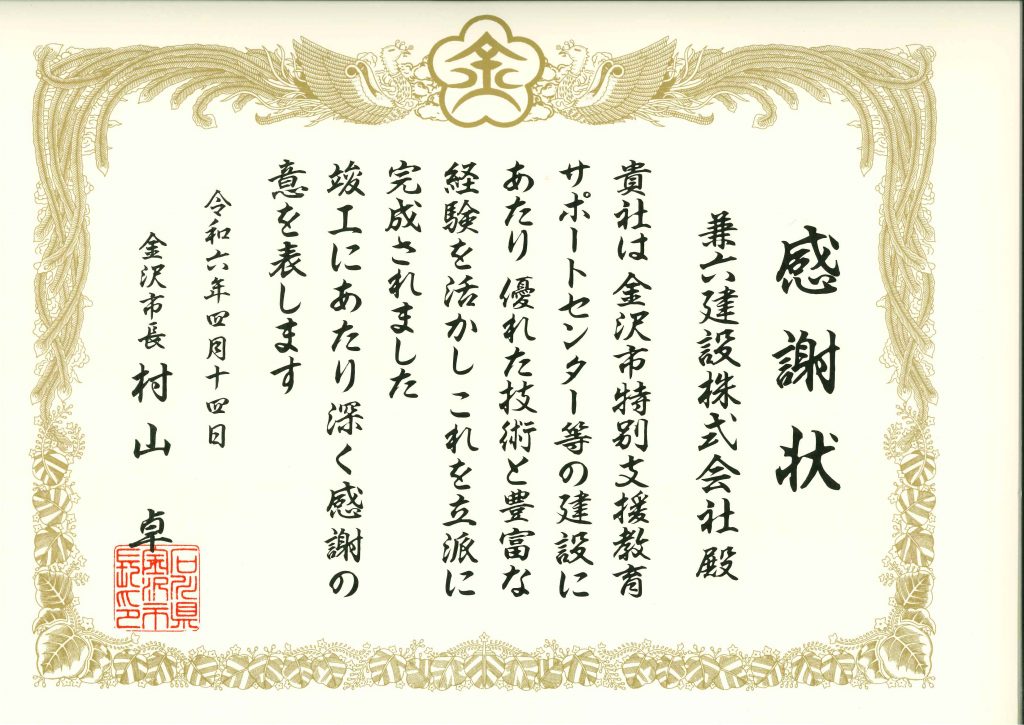 金
感謝状
兼六建設株式会社 殿
貴社は 金沢市特別支援教育
サポートセンター等の建設に
あたり 優れた技術と豊富な
経験を活かし これを立派に
完成されました
竣工にあたり深く感謝の
意を表します
令和六年四月十四日
金沢市長 村山 卓
石川県
金沢市
長印